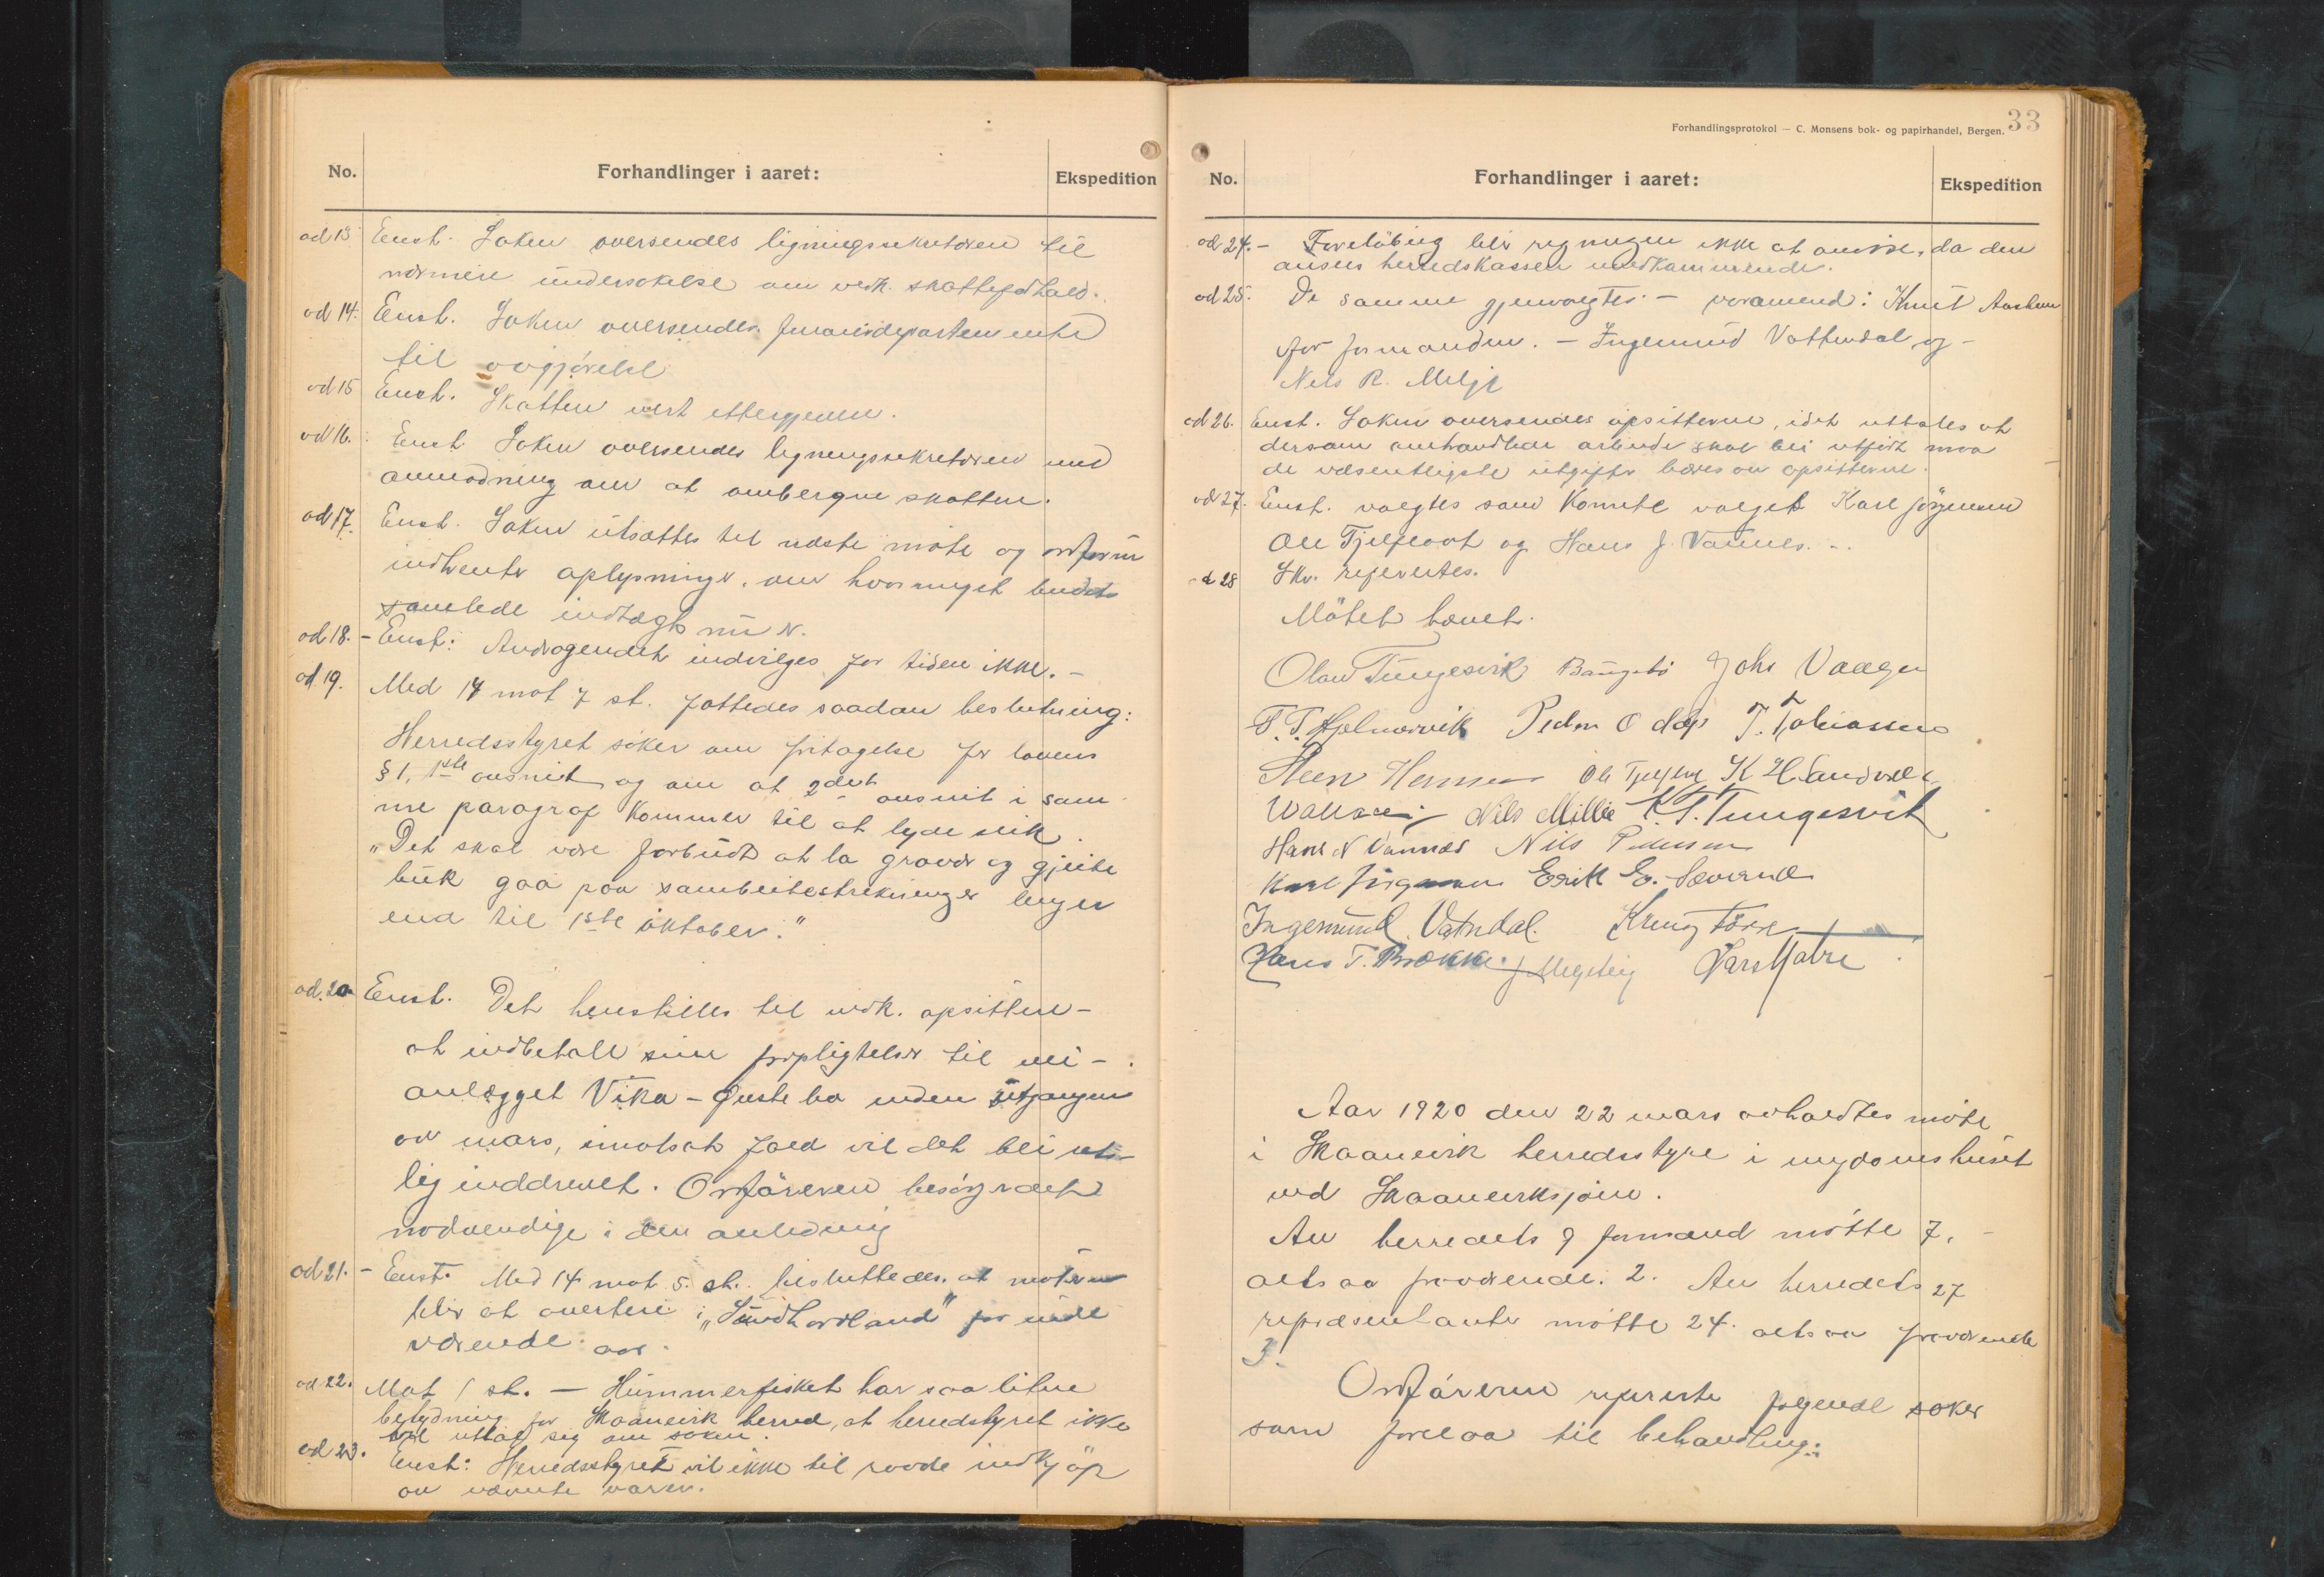 No.
Forhandlinger i aaret:
Ekspedition
ad 13 Enst. Saken oversendes ligningssekretæren til
nærmere undersøkelse om vedk. skatteforhold.
ad 14. Enst. Saken oversendes finansdepartementet
til avgjörelse
ad 15 Enst. Skatten vert ettergjeven.
ad 16. Enst. Saken oversendes ligningssekretæren med
anmodning om at omberegne skatten.
ad 17. Enst. Saken utsættes til næste møte og ordförer
indhenter oplysninger om hvor meget
samlede indtægt
ad 18. - Enst: Andragendet indvilges for tiden ikke. -
ad 19. Med 14 mot 7 st. fattedes saadan beslutning:
Herredsstyret søker om fritagelse for lovens
§ 1, 1ste avsnit og om at 2det avsnit i sam-
me paragraf kommer til at lyde slik.
"Det skal være forbudt at la graver og gjeite
buk gaa paa sambeitestrekninger lenger
end til 1ste oktober."
ad. 20 Enst. Det henstilles til vedk. opsittere -
at indbetale sine forpligtelser til vei-
anlægget Vika - Østebø inden utgangen
av mars, imotsat fald vil det bli ret-
lig inddrevet. Ordföreren besörger det
nødvendige i den anledning
ad 21. - Enst. Med 14 mot 5 st. besluttedes at møterne
blir at avertere i "Sundhordland" for inde
værende aar.
ad 22. Mot 1 st. - Hummerfisket har saa liten
betydning for Skaanevik herred, at herredstyret ikke
vil uttale sig om saken.
ad 23. Enst: Herredsstyret vil ikke til raade indkjöp
av nævnte varer.
Forhandlingsprotokol — C. Monsens bok- og papirhandel, Bergen.
33
No.
Forhandlinger i aaret:
Ekspedition
ad 24. - Foreløbig blir regningen ikke at anvise, da den
ansees herredskassen uvedkommende.
ad 25. De samme gjenvalgtes - varamend: Knut
for formanden. - Ingemund Vattendal og -
Nels R. Milje
ad 26. Enst. Saken oversendes opsitterne, idet uttales at
dersom omhandlede arbeide skal bli utført maa
de væsentligste utgifter bæres av opsitterne.
ad 27. Enst. valgtes som Komite valget Karl Jörgensen
Ole Tjelflaat og Hans J. Vannes. -
ad 28 Skr. refereertes.
Mötet hævet.
Olav Tungesvik Johs Vaage
Peder O T. Tobiassen
K H Sandvik
Nils Milje K. T. Tungesvik
Hans N Vannes Nils Pedersen
Karl Jörgensen Erik E. Sævareid
Ingemund Vatndal.
Hans T. Brekke. Lars Matre
Aar 1920 den 22 mars avholdtes møte
i Skaanevik herredsstyre i ungdomshuset
ved Skaaneviksjöen.
Av herredets 9 formænd møtte 7,
altsaa fraværende 2. Av herredets 27
repræsentanter møtte 24. altsaa fraværende
3.
Ordförerne refererte følgende saker
som forelaa til behandling: